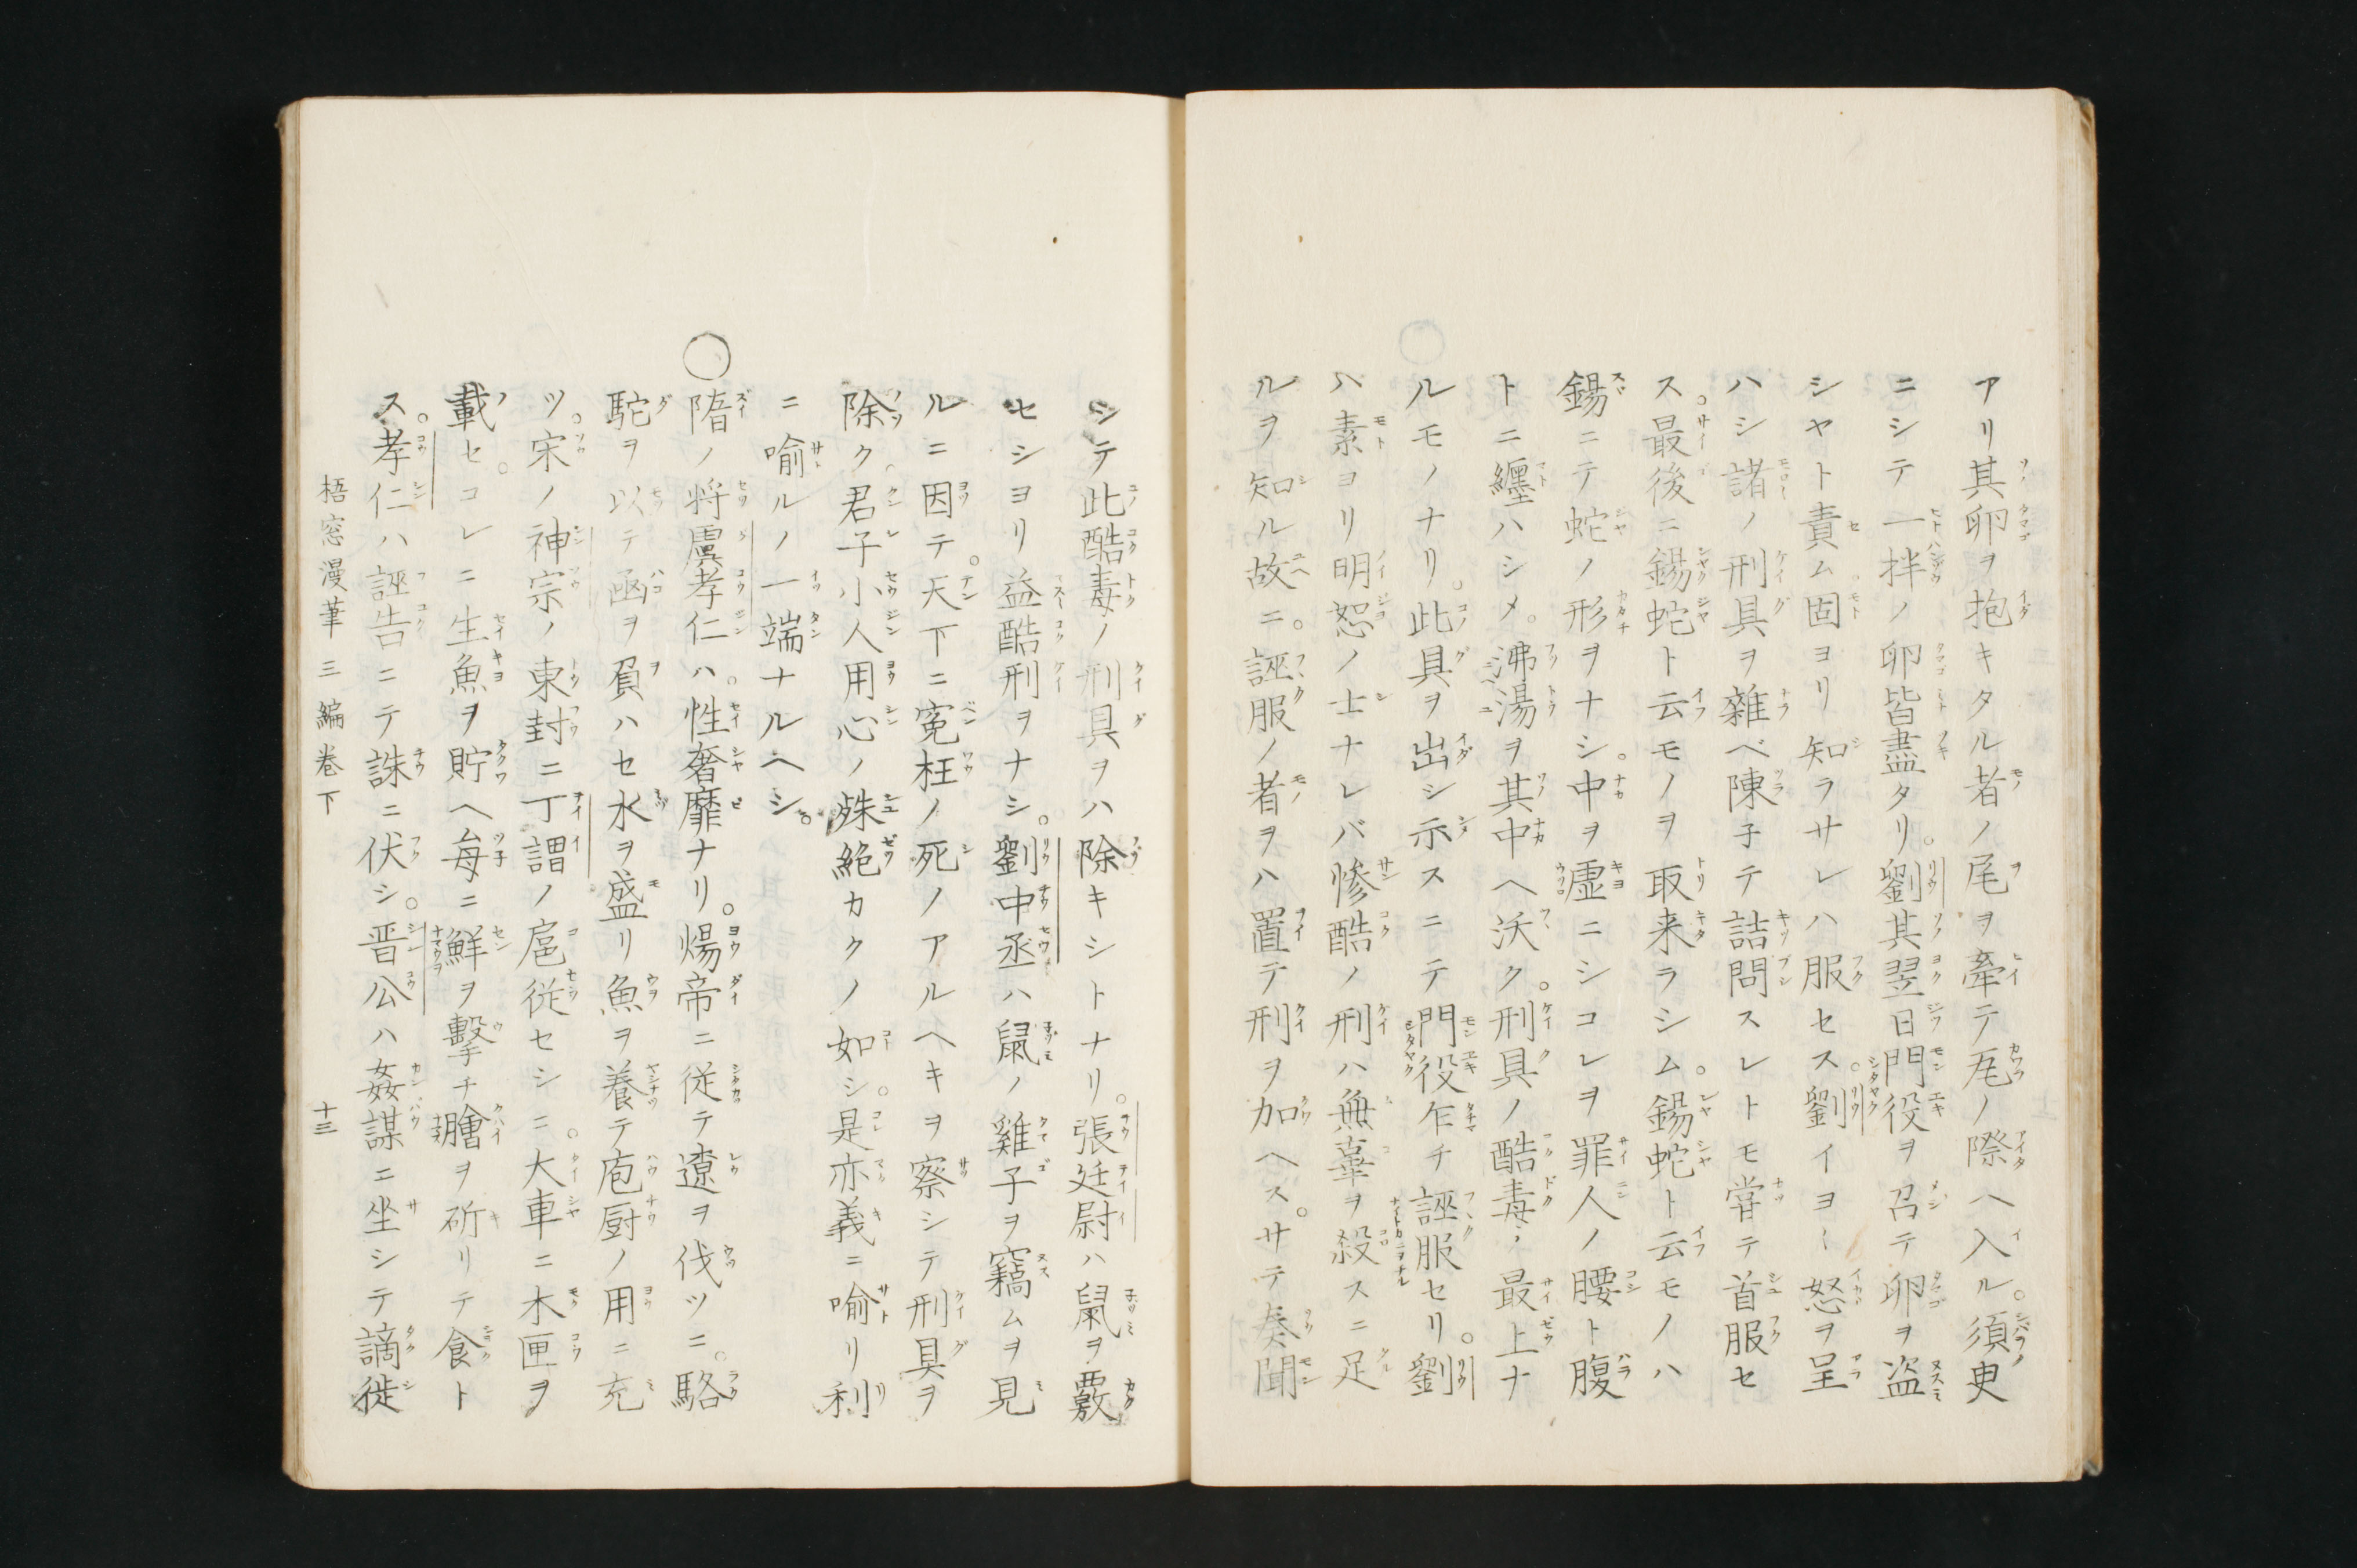 アリ其卵ヲ抱キタル者ノ尾ヲ牽テ瓦ノ際ヘ入ル。須臾
ニシテ一拌ノ卵皆盡タリ。劉其翌日門役ヲ召テ卵ヲ盗
シヤト責ム固ヨリ知ラサレハ服セス。劉イヨ〱怒ヲ呈
ハシ諸ノ刑具ヲ雜ベ陳子テ詰問スレトモ甞テ首服セ
ス。最後ニ錫蛇ト云モノヲ取来ラシム。錫蛇ト云モノハ
錫ニテ蛇ノ形ヲナシ。中ヲ虚ニシコレヲ罪人ノ腰ト腹
トニ纏ハシメ。沸湯ヲ其中ヘ沃ク。刑具ノ酷毒ノ最上ナ
ルモノナリ。此具ヲ出シ示スニテ門役乍チ誣服セリ。劉
ハ素ヨリ明恕ノ士ナレバ惨酷ノ刑ハ無辜ヲ殺スニ足
ルヲ知ル故ニ。誣服ノ者ヲハ置テ刑ヲ加ヘス。サテ奏聞
シテ此酷毒ノ刑具ヲハ除キシトナリ。張廷尉ハ鼠ヲ覈
セシヨリ益酷刑ヲナシ。劉中丞ハ鼠ノ雞子ヲ竊ムヲ見
ルニ因テ。天下ニ寃枉ノ死ノアルヘキヲ察シテ刑具ヲ
除ク。君子小人用心ノ殊絶カクノ如シ。是亦義ニ喩リ利
ニ喩ルノ一端ナルヘシ。
○隋ノ将虞孝仁ハ。性奢靡ナリ。煬帝ニ従テ遼ヲ伐ツニ。駱
駝ヲ以テ凾ヲ負ハセ水ヲ盛リ魚ヲ養テ庖厨ノ用ニ充
ツ。宋ノ神宗ノ東封ニ丁謂ノ扈従セシニ。大車ニ木匣ヲ
載セ。コレニ生魚ヲ貯ヘ毎ニ鮮ヲ擊チ膾ヲ斫リテ食ト
ス。孝仁ハ誣告ニテ誅ニ伏シ。晋公ハ姦謀ニ坐シテ謫徙
梧窓漫筆 三編巻下 十三